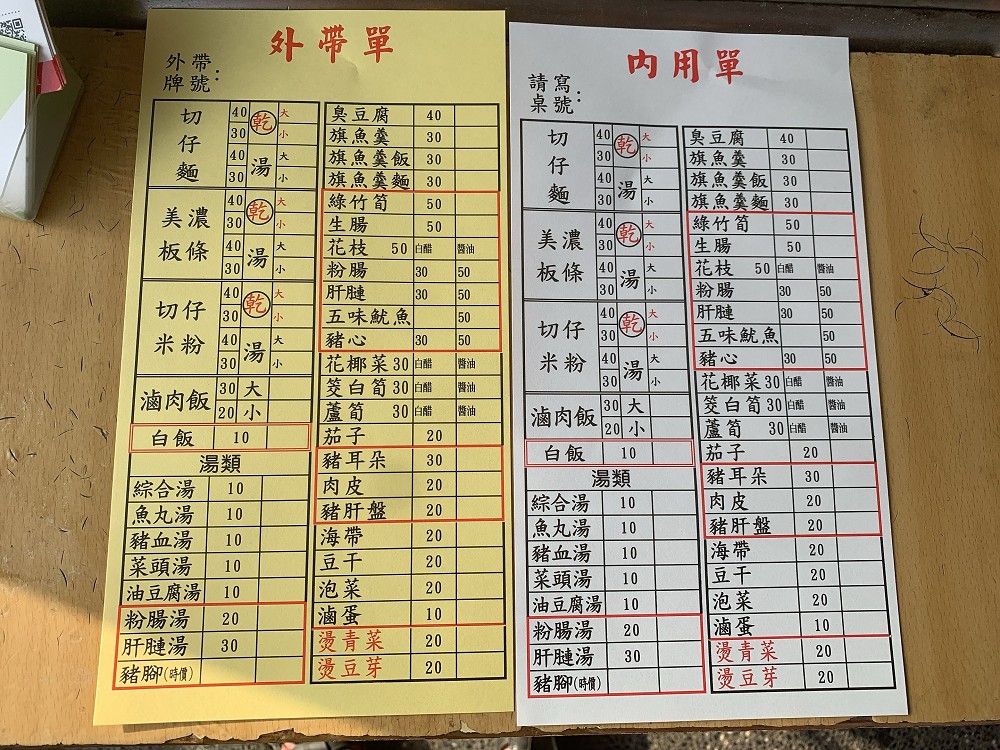 外帶單
外帶
牌號：
切仔麵
40 乾 大
30 小
40 湯 大
30 小
美濃板條
40 乾 大
30 小
40 湯 大
30 小
切仔米粉
40 乾 大
30 小
40 湯 大
30 小
滷肉飯
30 大
20 小
白飯 10
湯類
綜合湯 10
魚丸湯 10
豬血湯 10
菜頭湯 10
油豆腐湯 10
粉腸湯 20
肝膁湯 30
豬腳(時價)
臭豆腐 40
旗魚羹 30
旗魚羹飯 30
旗魚羹麵 30
綠竹筍 50
生腸 50
花枝 50 白醋 醬油
粉腸 30 50
肝膁 30 50
五味魷魚 50
豬心 30 50
花椰菜 30 白醋 醬油
筊白筍 30 白醋 醬油
蘆筍 30 白醋 醬油
茄子 20
豬耳朵 30
肉皮 20
豬肝盤 20
海帶 20
豆干 20
泡菜 20
滷蛋 10
燙青菜 20
燙豆芽 20
內用單
請寫
桌號：
切仔麵
40 乾 大
30 小
40 湯 大
30 小
美濃板條
40 乾 大
30 小
40 湯 大
30 小
切仔米粉
40 乾 大
30 小
40 湯 大
30 小
滷肉飯
30 大
20 小
白飯 10
湯類
綜合湯 10
魚丸湯 10
豬血湯 10
菜頭湯 10
油豆腐湯 10
粉腸湯 20
肝膁湯 30
豬腳(時價)
臭豆腐 40
旗魚羹 30
旗魚羹飯 30
旗魚羹麵 30
綠竹筍 50
生腸 50
花枝 50 白醋 醬油
粉腸 30 50
肝膁 30 50
五味魷魚 50
豬心 30 50
花椰菜 30 白醋 醬油
筊白筍 30 白醋 醬油
蘆筍 30 白醋 醬油
茄子 20
豬耳朵 30
肉皮 20
豬肝盤 20
海帶 20
豆干 20
泡菜 20
滷蛋 10
燙青菜 20
燙豆芽 20